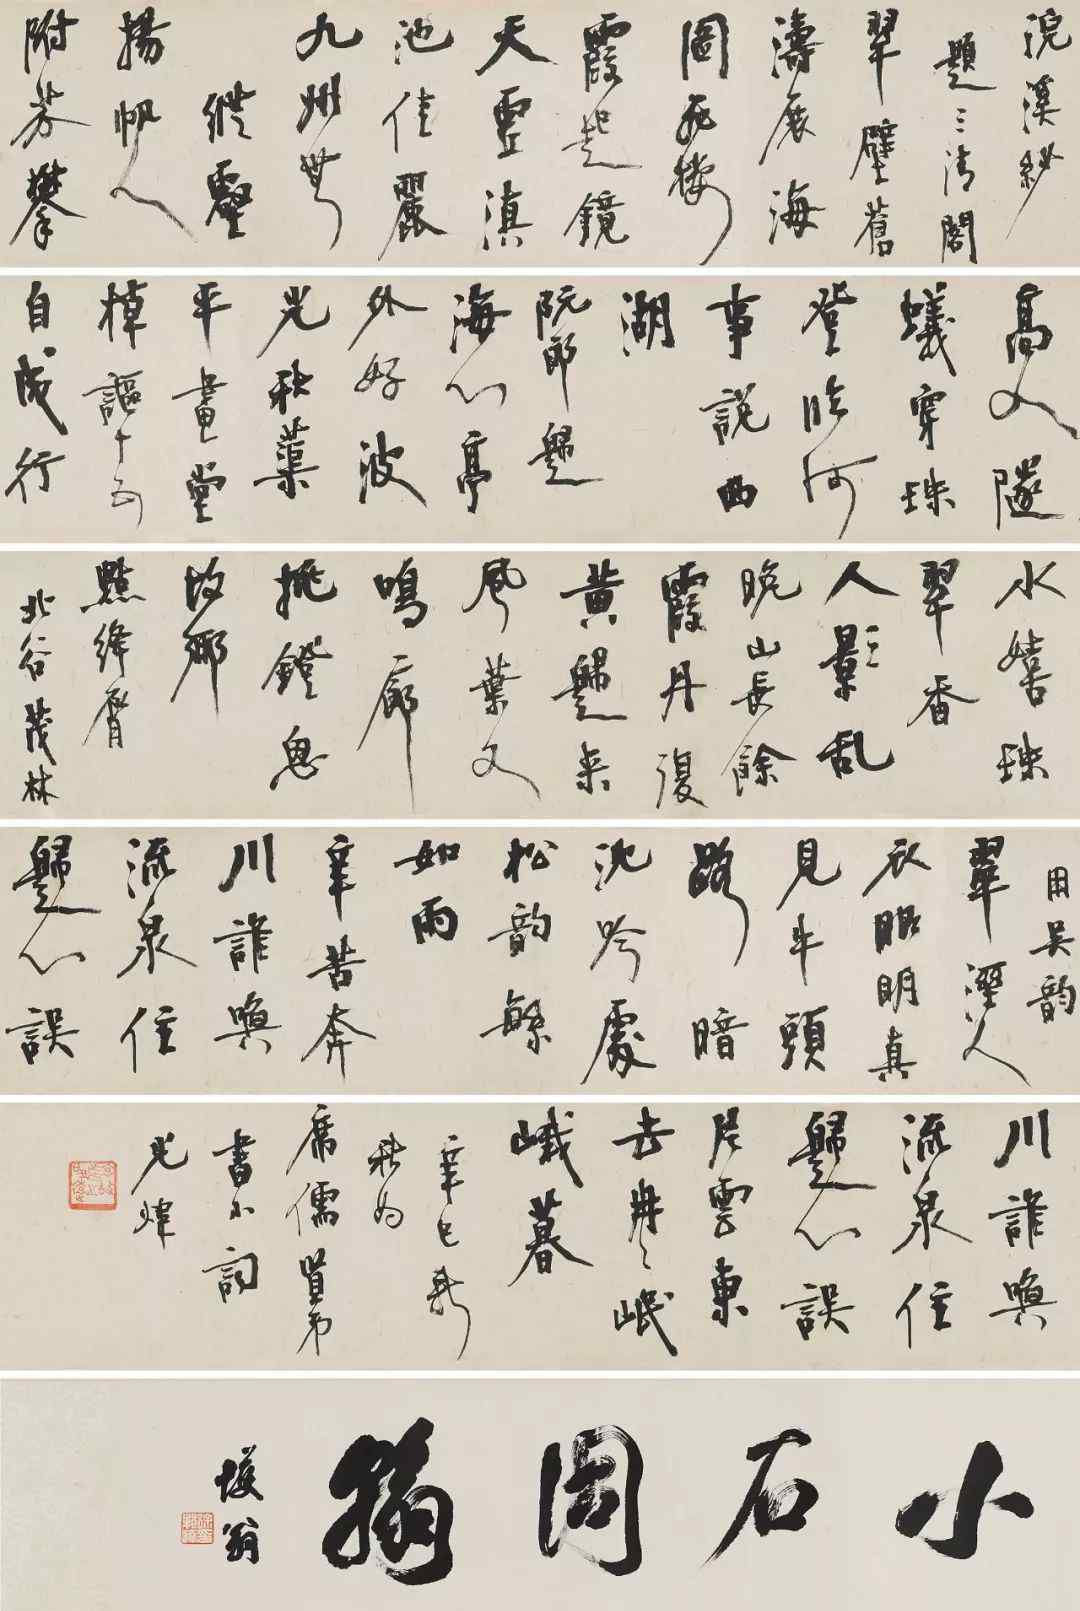 浣溪紗
題三清閣
翠壁蒼
濤展海
圖飛樓
霞起鏡
天虛滇
池佳麗
九州無
縱壑
揚帆人
附芥攀
高人隧
蟻穿珠
登臨何
事說西
湖
阮郎歸
海心亭
外好波
光秋蕖
平畫堂
棹謳十五
自成行
水嬉珠
翠香
人景亂
晚山長餘
霞丹復
黃歸來
風葉又
鳴廊
挑鐙思
故鄉
點絳脣
北谷茂林
用吳韵
翠溼人
衣眼明真
見牛頭
路暗
沈吟處
松韵繇
如雨
辛苦奔
川誰喚
流泉住
歸心誤
川誰喚
流泉住
歸心誤
片雲東
去冉冉岷
峨暮
辛巳新
秋為
席儒賢弟
書小詞
光煒
小石詞翰
翁